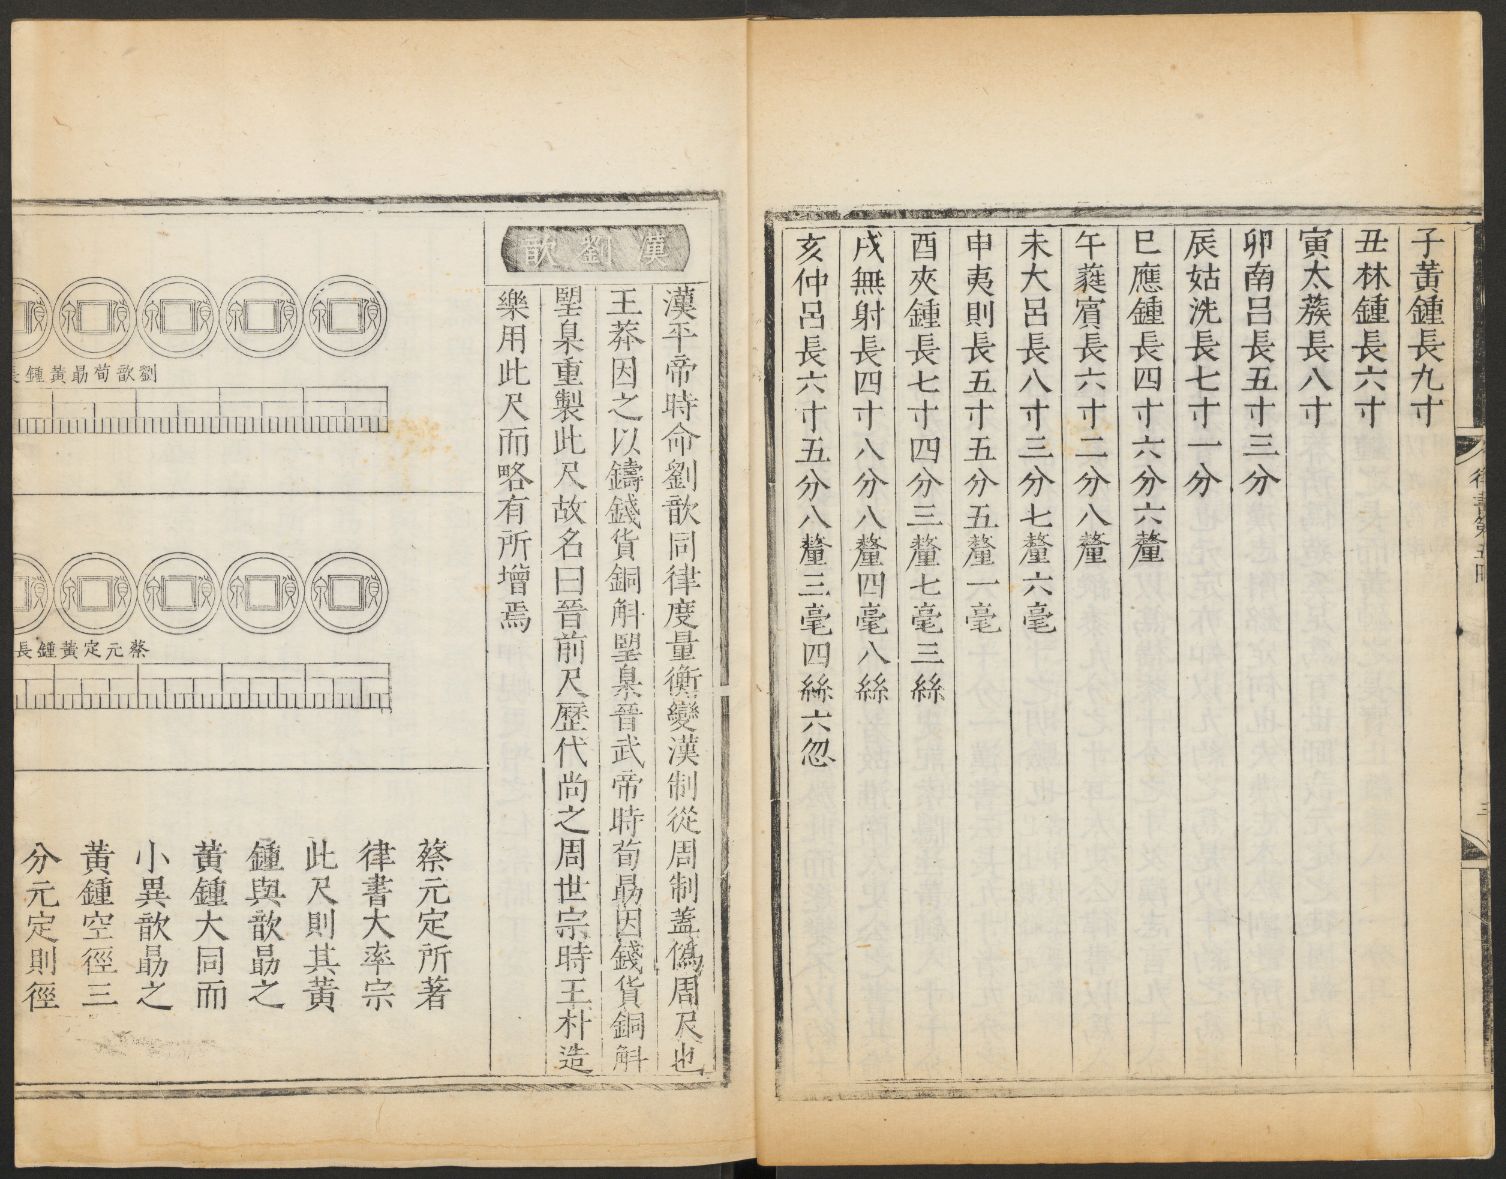 子黃鍾長九寸
丑林鍾長六寸
寅太蔟長八寸
卯南呂長五寸三分
辰姑洗長七寸一分
巳應鍾長四寸六分六釐
午蕤賓長六寸二分八釐
未大呂長八寸三分七釐六毫
申夷則長五寸五分五釐一毫
酉夾鍾長七寸四分三釐七毫三絲
戌無射長四寸八分八釐四毫八絲
亥仲呂長六寸五分八釐三毫四絲六忽
漢劉歆
漢平帝時命劉歆同律度量衡變漢制從周制蓋僞周尺也
王莽因之以鑄錢貨銅斛望臬晉武帝時荀勗因錢貨銅斛
望臬重製此尺故名曰晉前尺歷代尚之周世宗時王朴造
樂用此尺而略有所增焉
劉歆荀勗黃鍾長
蔡元定黃鍾長
蔡元定所著
律書大率宗
此尺則其黃
鍾與歆勗之
黃鍾大同而
小異歆勗之
黃鍾空徑三
分元定則徑